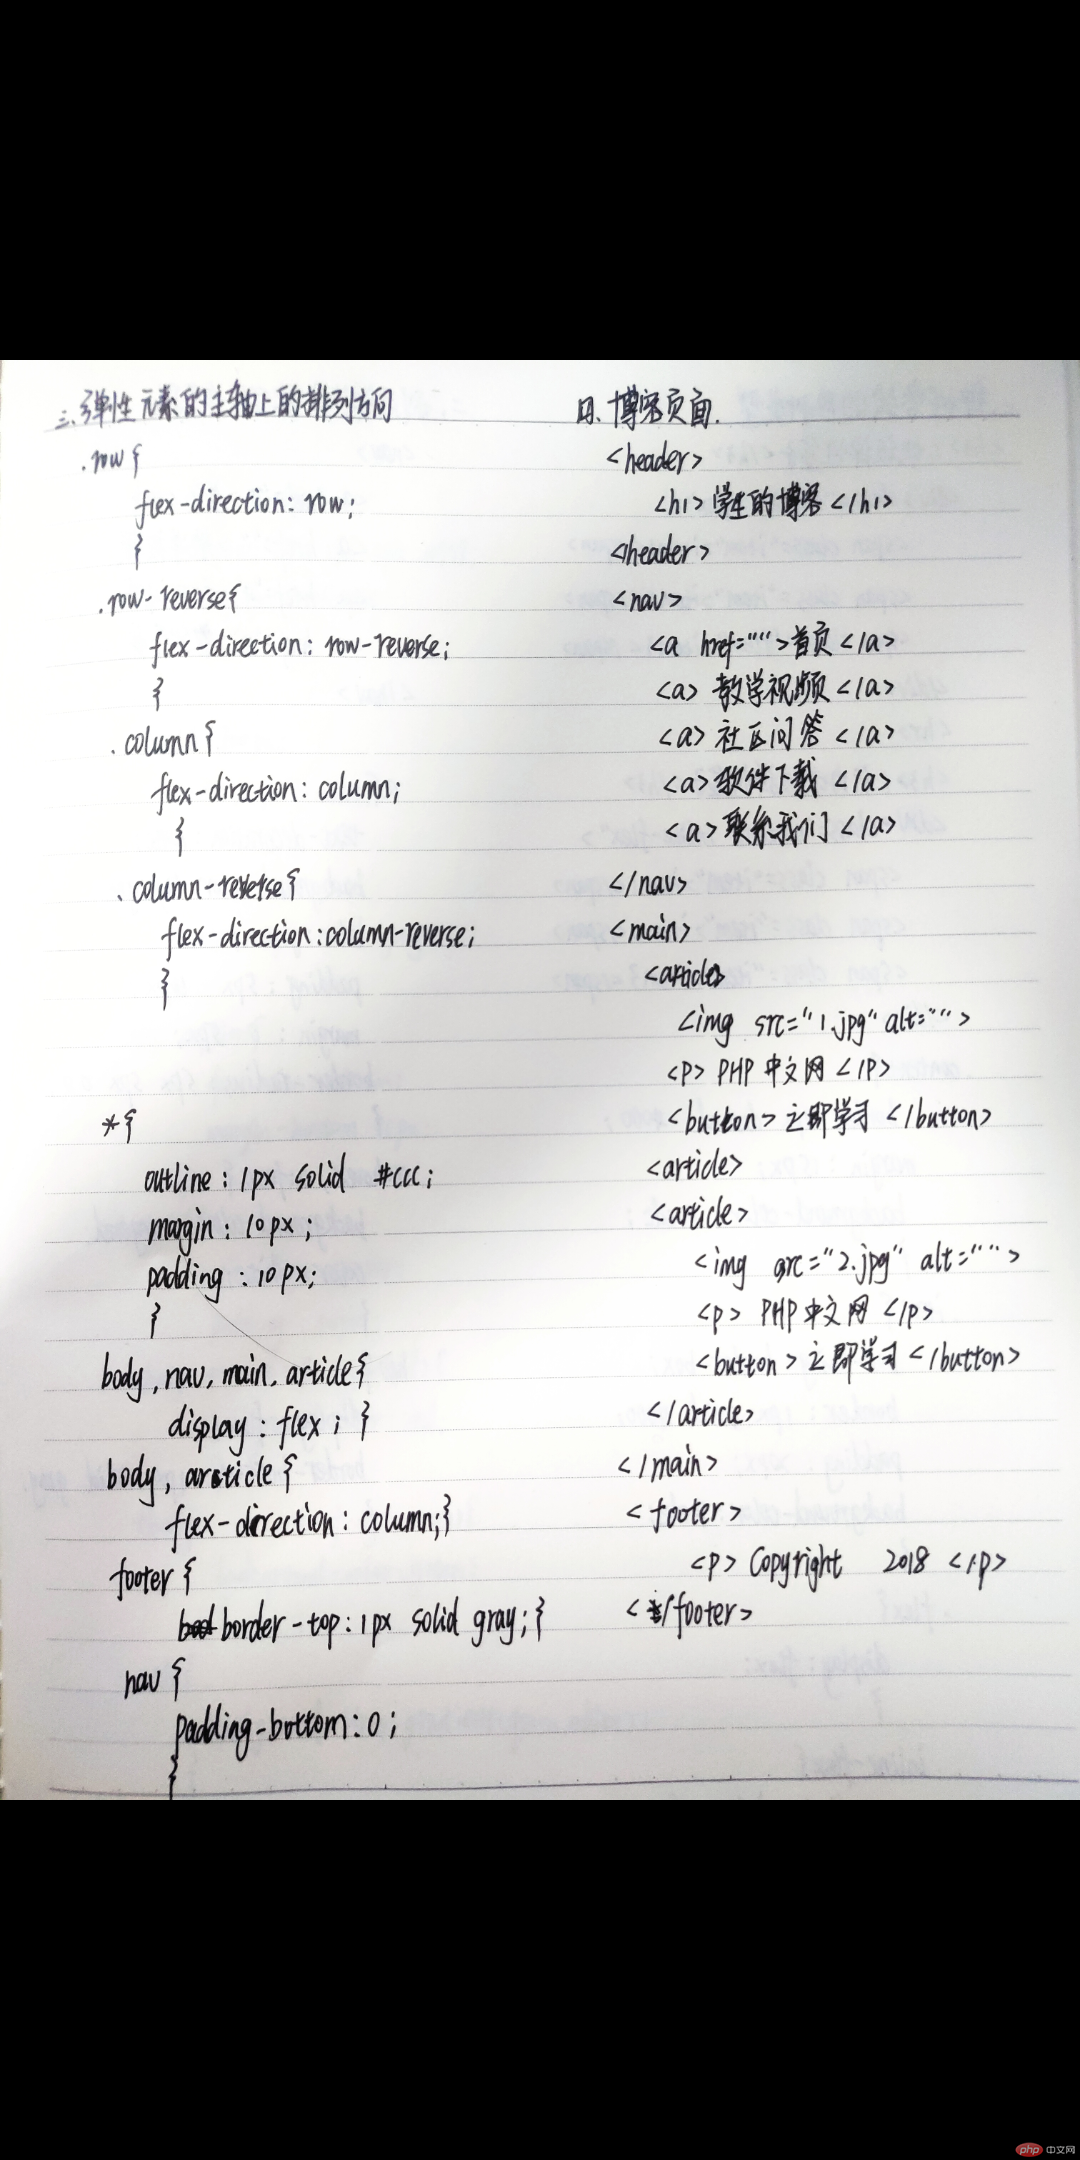 三、弹性元素的主轴上的排列方向
.row{
flex-direction: row;
}
.row-reverse{
flex-direction: row-reverse;
}
.column{
flex-direction: column;
}
.column-reverse{
flex-direction:column-reverse;
}
*{
outline: 1px solid #ccc;
margin: 10px;
padding: 10px;
}
body, nav, main, article{
display: flex; }
body, article{
flex-direction: column;}
footer{
border-top: 1px solid gray;}
nav{
padding-bottom: 0;
}
四、博客页面.
<header>
<h1>学生的博客</h1>
</header>
<nav>
<a href="">首页</a>
<a>教学视频</a>
<a>社区问答</a>
<a>软件下载</a>
<a>联系我们</a>
</nav>
<main>
<article>
<img src="1.jpg" alt="">
<P>PHP中文网</P>
<button>立即学习</button>
<article>
<article>
<img src="2.jpg" alt="">
<p>PHP中文网</p>
<button>立即学习</button>
</article>
</main>
<footer>
<p>Copyright 2018</p>
</footer>
php 中文网